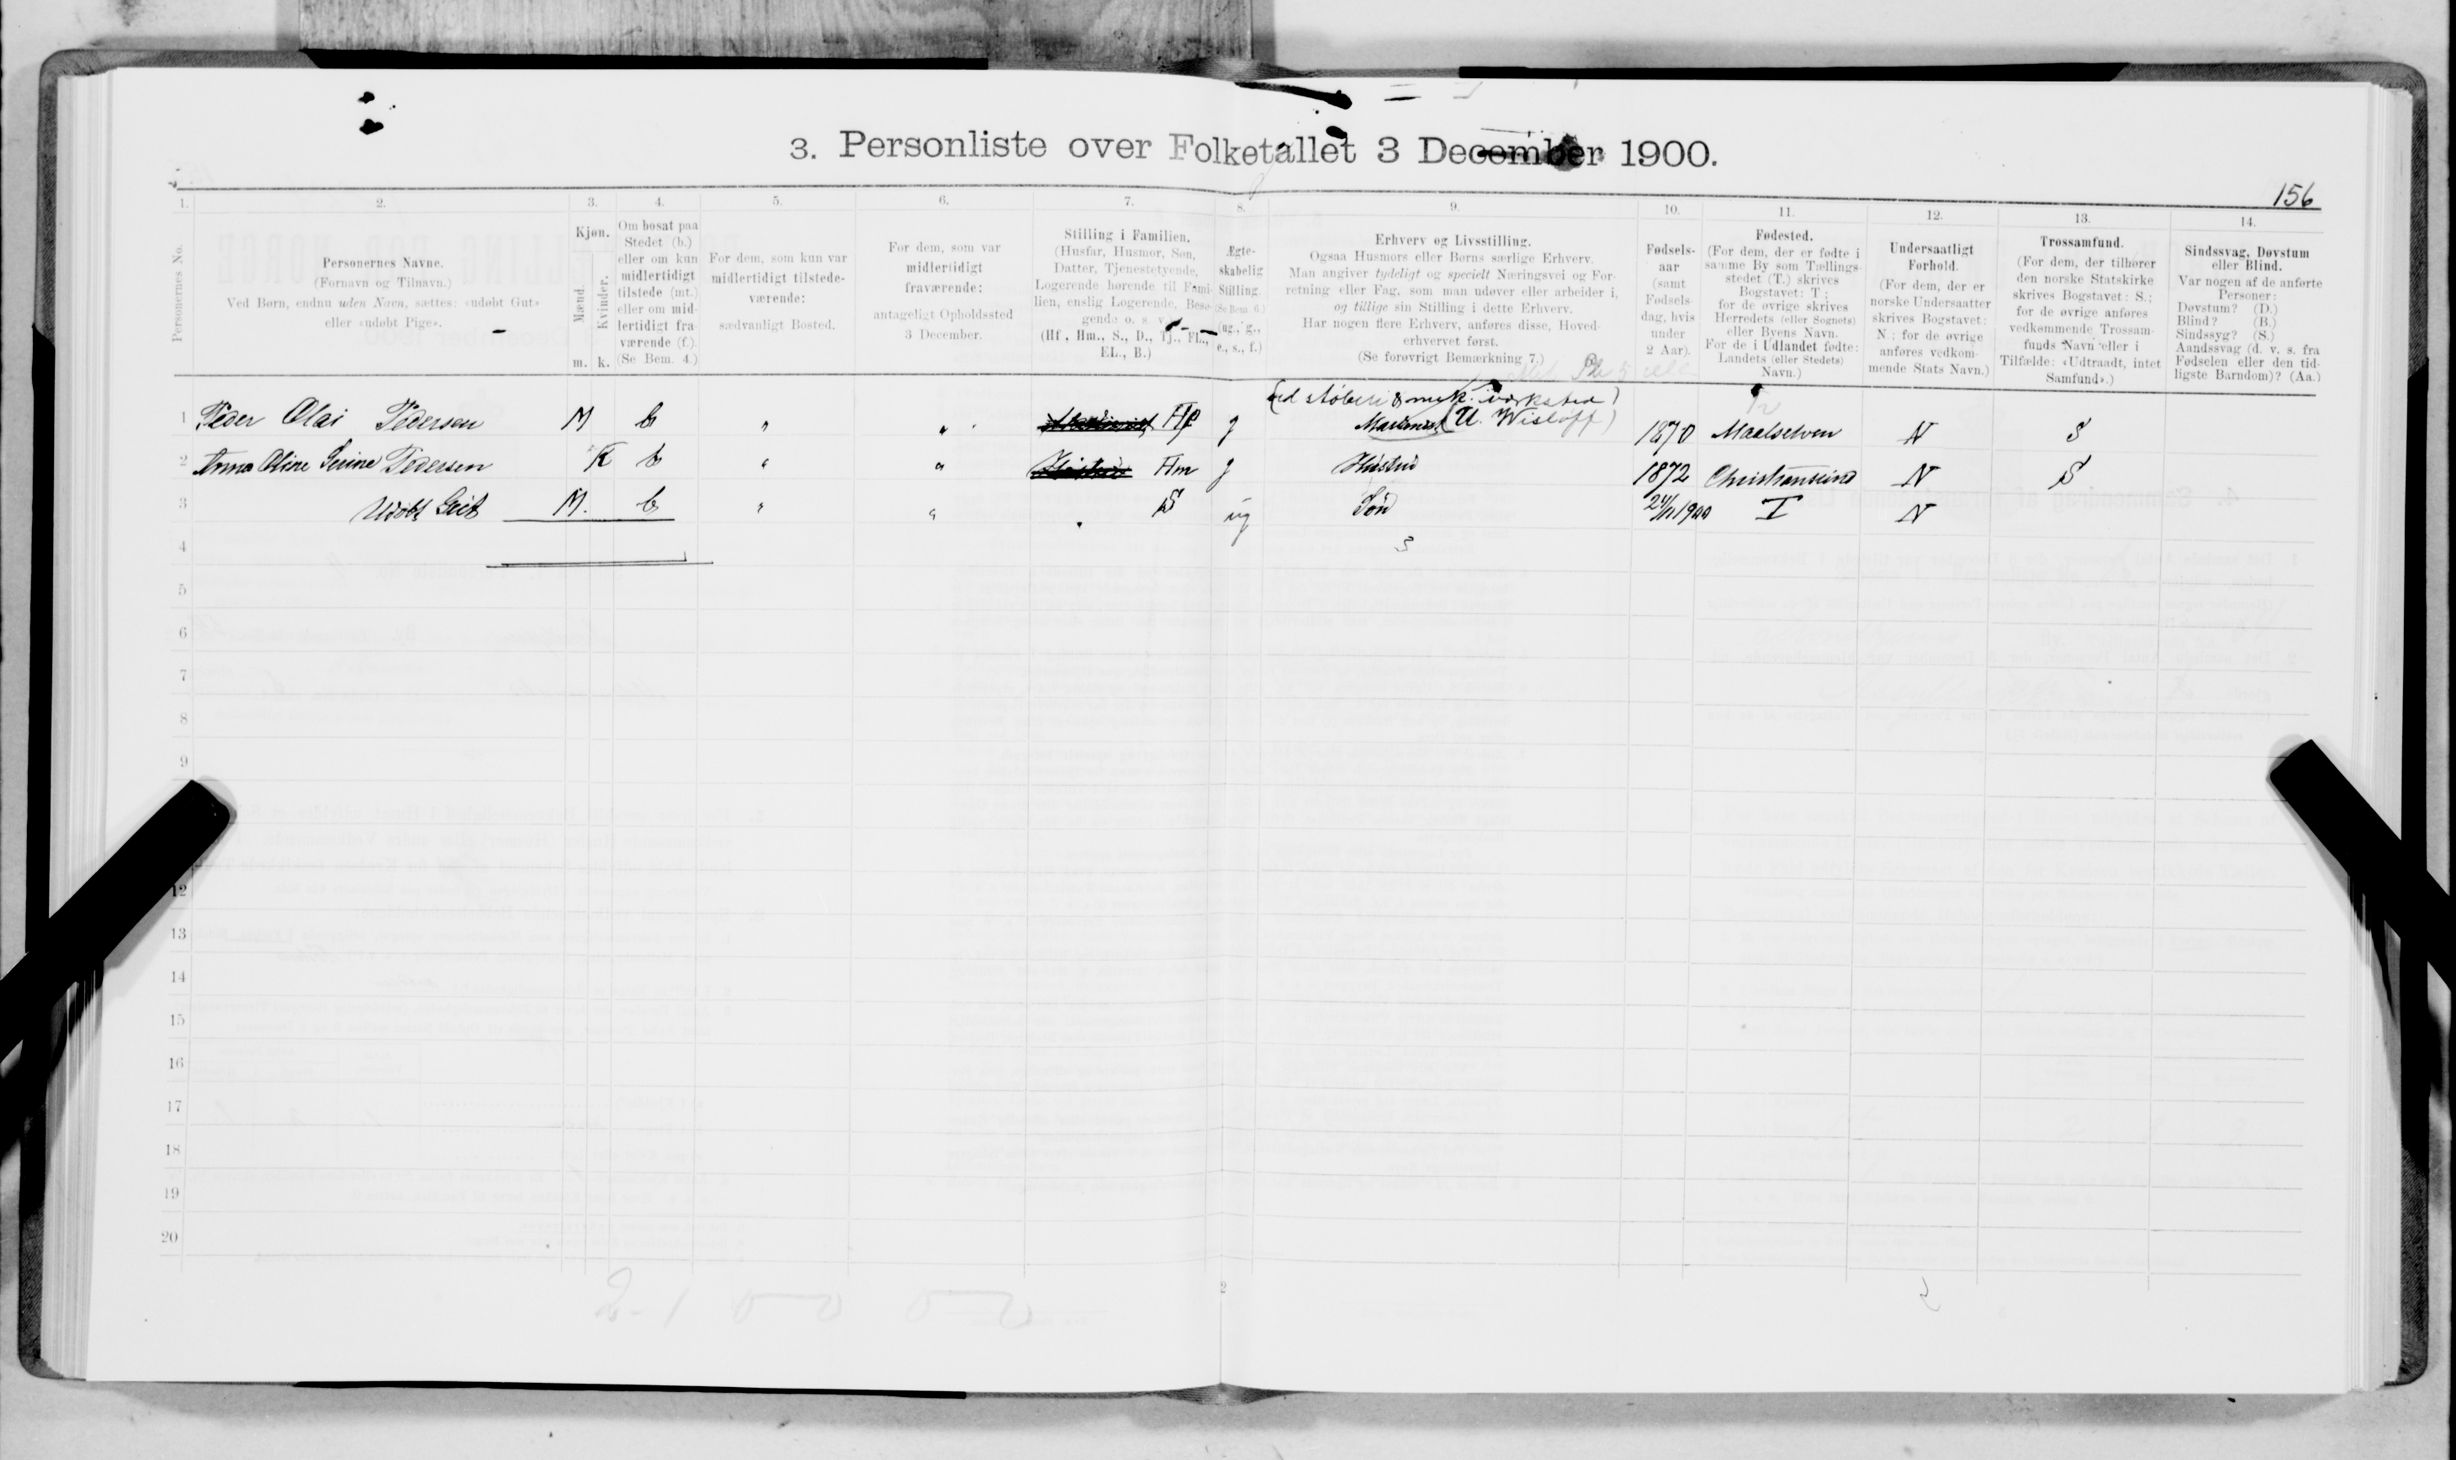 3. Personliste over Folketallet 3 December 1900.
156
1. 2. 3. 4. 5. 6. 7. 8. 9. 10. 11. 12. 13. 14.
Personernes No.
Personernes Navne.
(Fornavn og Tilnavn.)
Ved Børn, endnu uden Navn, sættes: «udøbt Gut»
eller «udøbt Pige».
Kjøn.
Mænd.
Kvinder.
m. k.
Om bosat paa
Stedet (b.)
eller om kun
midlertidigt
tilstede (mt.)
eller om mid-
lertidigt fra-
værende (f.).
(Se Bem. 4.)
For dem, som kun var
midlertidigt tilstede-
værende:
sædvanligt Bosted.
For dem, som var
midlertidigt
fraværende:
antageligt Opholdssted
3 December.
Stilling i Familien.
(Husfar, Husmor, Søn,
Datter, Tjenestetyende,
Logerende hørende til Fami-
lien, enslig Logerende, Besø-
gende o. s. v.
(Hf., Hm., S., D., Tj., FL.,
EL., B.)
Ægte-
skabelig
Stilling.
(Se Bem. 6.)
(ug., g.,
e., s., f.)
Erhverv og Livsstilling.
Ogsaa Husmors eller Børns særlige Erhverv.
Man angiver tydeligt og specielt Næringsvei og For-
retning eller Fag, som man udøver eller arbeider i,
og tillige sin Stilling i dette Erhverv.
Har nogen flere Erhverv, anføres disse, Hoved-
erhvervet først.
(Se forøvrigt Bemærkning 7.)
Fødsels-
aar
(samt
Fødsels-
dag, hvis
under
2 Aar).
Fødested.
(For dem, der er fødte i
samme By som Tællings-
stedet (T.) skrives
Bogstavet: T;
for de øvrige skrives
Herredets (eller Sognets)
eller Byens Navn.
For de i Udlandet fødte:
Landets (eller Stedets)
Navn.)
Undersaatligt
Forhold.
(For dem, der er
norske Undersaatter
skrives Bogstavet:
N; for de øvrige
anføres vedkom-
mende Stats Navn.)
Trossamfund.
(For dem, der tilhører
den norske Statskirke
skrives Bogstavet: S.;
for de øvrige anføres
vedkommende Trossam-
funds Navn eller i
Tilfælde: «Udtraadt, intet
Samfund».)
Sindssvag, Døvstum
eller Blind.
Var nogen af de anførte
Personer:
Døvstum? (D.)
Blind? (B.)
Sindssyg? (S.)
Aandssvag (d. v. s. fra
Fødselen eller den tid-
ligste Barndom)? (Aa.)
(ved støberi & mek. værksted)
1 Peder Olai Pedersen M b " " Hf g Maskinist (U. Wisløff) 1870 Maalselven N S
2 Anna Oline Pedersen K b " " Hm g Hustru 1872 Christiansund N S
3 Udøbt Gut M. b " " S ug Søn 24/11 1900 T N
3
4
5
6
7
8
9
12
13
14
15
16
17
18
19
20
2